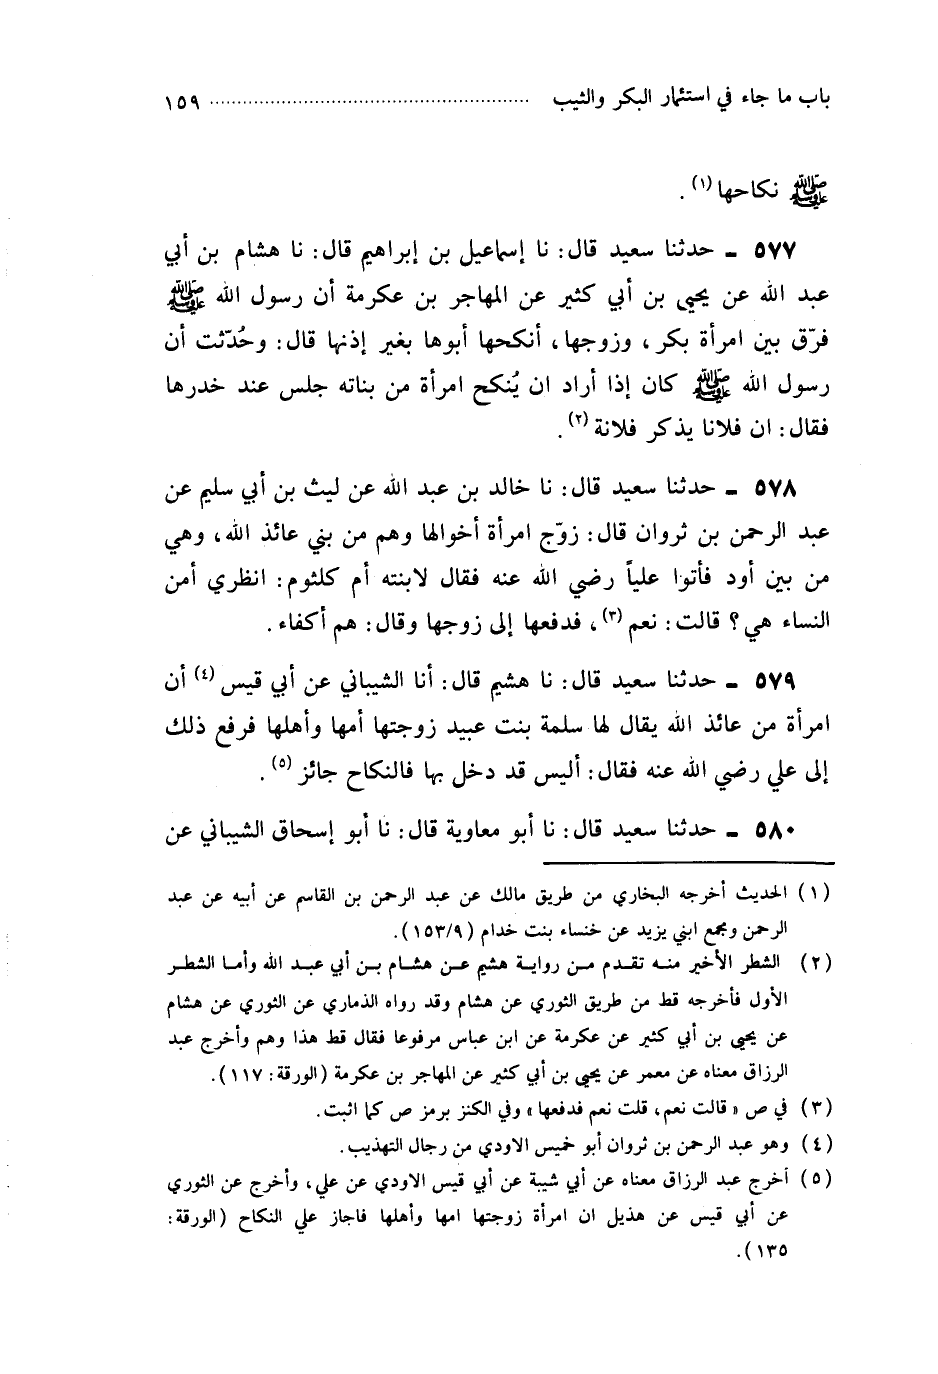 باب ما جاء في استئمار البكر والثيب ........ ١٥٩
ﷺ نكاحها (١) .
٥٧٧ ـ حدثنا سعيد قال : نا إسماعيل بن إبراهيم قال : نا هشام بن أبي
عبد الله عن يحيى بن أبي كثير عن المهاجر بن عكرمة أن رسول الله ﷺ
فرّق بين امرأة بكر ، وزوجها ، أنكحها أبوها بغير إذنها قال : وحُدّثت أن
رسول الله ﷺ كان إذا أراد ان يُنكح امرأة من بناته جلس عند خدرها
فقال : ان فلانا يذكر فلانة (٢) .
٥٧٨ ـ حدثنا سعيد قال : نا خالد بن عبد الله عن ليث بن أبي سليم عن
عبد الرحمن بن ثروان قال : زوّج امرأة أخوالها وهم من بني عائذ الله ، وهي
من بين أود فأتوا علياً رضي الله عنه فقال لابنته أم كلثوم : انظري أمن
النساء هي ؟ قالت : نعم (٣) ، فدفعها إلى زوجها وقال : هم أكفاء .
٥٧٩ ـ حدثنا سعيد قال : نا هشيم قال : أنا الشيباني عن أبي قيس (٤) أن
امرأة من عائذ الله يقال لها سلمة بنت عبيد زوجتها أمها وأهلها فرفع ذلك
إلى علي رضي الله عنه فقال : أليس قد دخل بها فالنكاح جائز (٥) .
٥٨٠ ـ حدثنا سعيد قال : نا أبو معاوية قال : نا أبو إسحاق الشيباني عن
(١) الحديث أخرجه البخاري من طريق مالك عن عبد الرحمن بن القاسم عن أبيه عن عبد
الرحمن ومجمع ابني يزيد عن خنساء بنت خدام (١٥٣/٩) .
(٢) الشطر الأخير منه تقدم من رواية هشيم عن هشام بن أبي عبد الله وأما الشطر
الأول فأخرجه قط من طريق الثوري عن هشام وقد رواه الذماري عن الثوري عن هشام
عن يحيى بن أبي كثير عن عكرمة عن ابن عباس مرفوعا فقال قط هذا وهم وأخرج عبد
الرزاق معناه عن معمر عن يحيى بن أبي كثير عن المهاجر بن عكرمة (الورقة : ١١٧) .
(٣) في ص « قالت نعم ، قلت نعم فدفعها » وفي الكنز برمز ص كما اثبت .
(٤) وهو عبد الرحمن بن ثروان أبو خميس الاودي من رجال التهذيب .
(٥) أخرج عبد الرزاق معناه عن أبي شيبة عن أبي قيس الاودي عن علي ، وأخرج عن الثوري
عن أبي قيس عن هذيل ان امرأة زوجتها امها وأهلها فاجاز علي النكاح (الورقة :
١٣٥) .